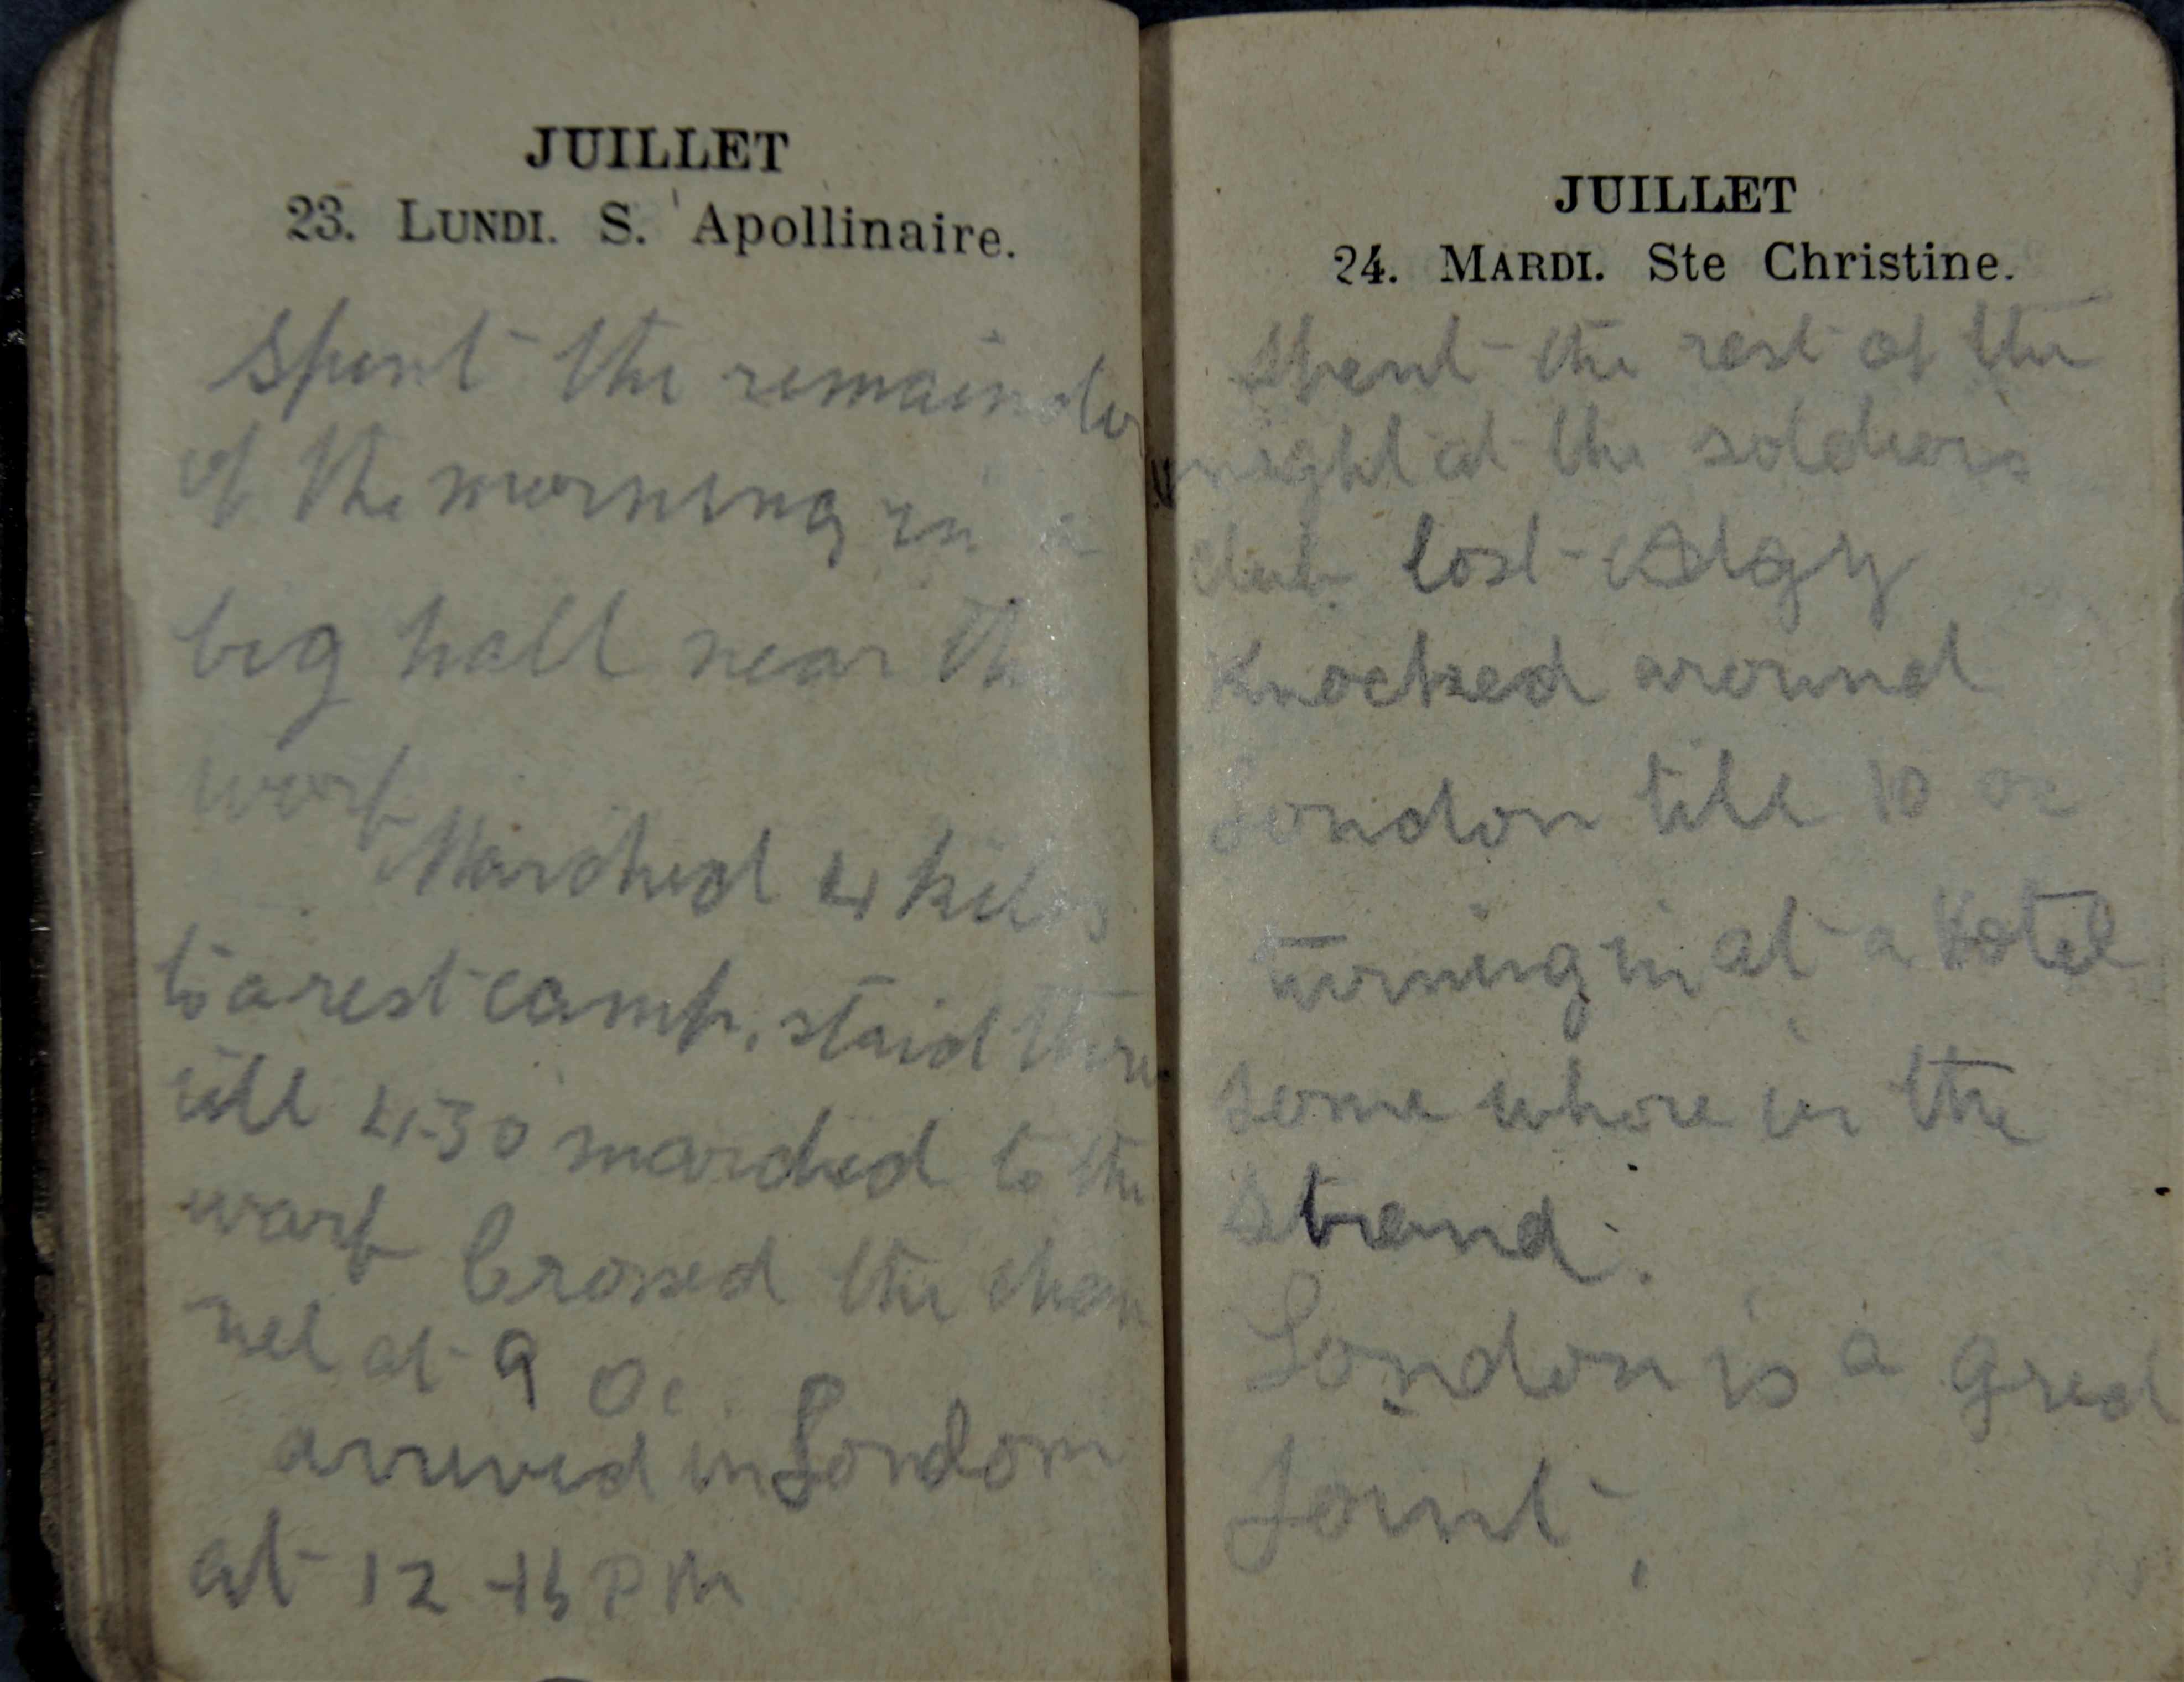 JUILLET
23. LUNDI. S. Apollinaire.
Spent the remainder
of the morning in a
big hall near the
warf
Marched 4 kilos
to a rest camp, staid there
till 4-30 marched to the
warf Crossed the chan
nel at 9 Oc.
arrived in London
at 12-15 PM
JUILLET
24. MARDI. Ste Christine.
Spent the rest of the
night at the soldiers
club lost Algy
Knocked around
London till 10 oc
turning in at a Hotel
some where in the
Strand.
London is a great
Joint.